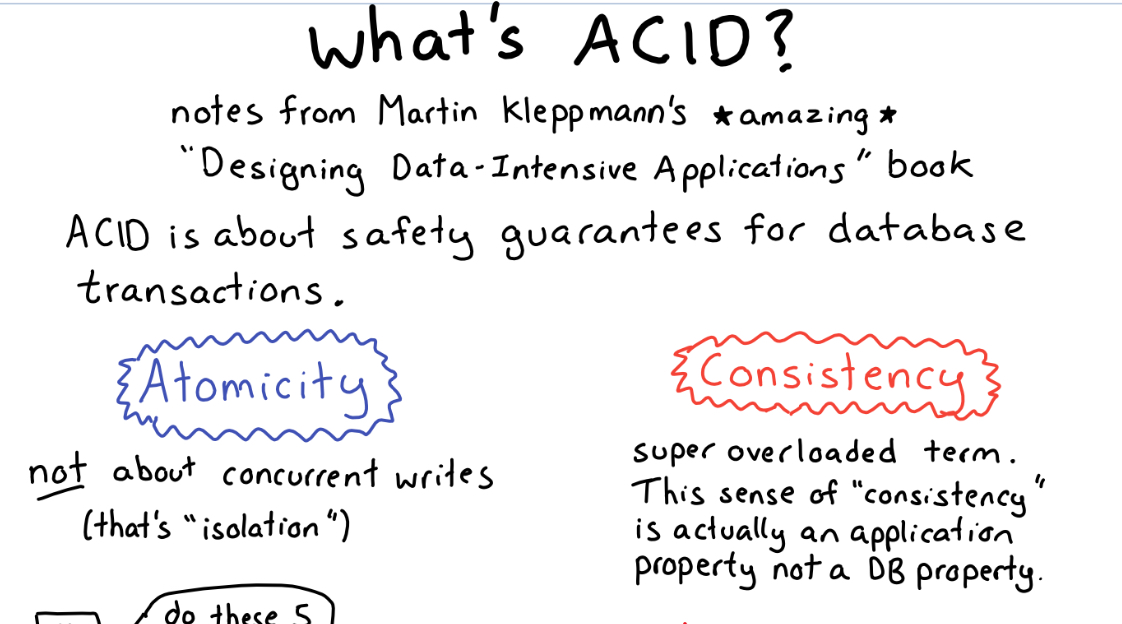 What's ACID?
notes from Martin Kleppmann's ★amazing★
"Designing Data-Intensive Applications" book
ACID is about safety guarantees for database
transactions.
Atomicity
not about concurrent writes
(that's "isolation")
do these 5
Consistency
super overloaded term.
This sense of "consistency"
is actually an application
property not a DB property.